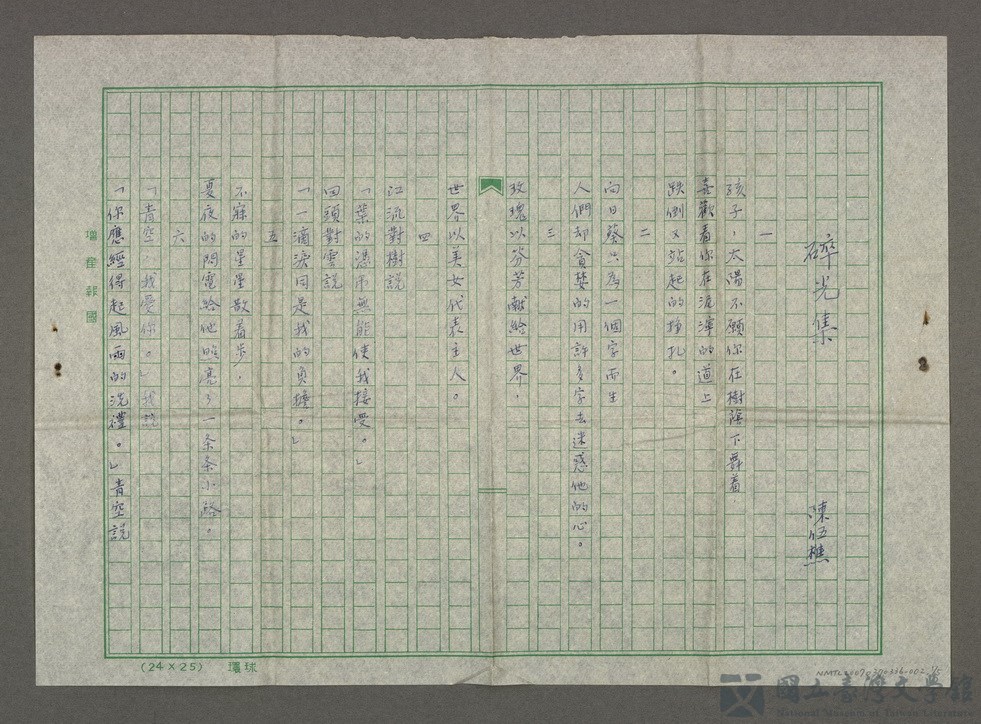 碎光集
陳伍樵
一
孩子，太陽不願你在樹蔭下舞着，
喜歡看你在泥濘的道上
跌倒又站起的掙扎。
二
向日葵只為一個字而生
人們却貪婪的用許多字去迷惑他的心。
三
玫瑰以芬芳獻給世界，
世界以美女代表主人。
四
江流對樹說
「葉的憑吊無能使我接受。」
回頭對雲說
「一滴淚同是我的負擔。」
五
不寐的星星散着步，
夏夜的閃電給他照亮了一条条小路。
六
「青空：我愛你。」我說
「你應經得起風雨的洗禮。」青空說
增產報國
(24×25) 環球
國立臺灣文學館
National Museum of Taiwan Literature